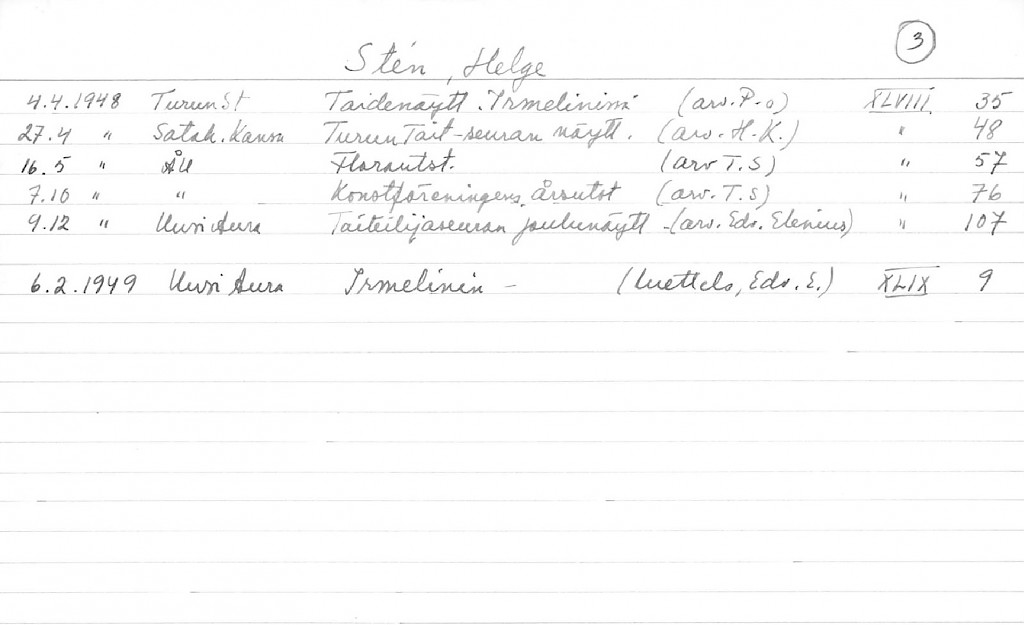 3
Stén, Helge
4.4.1948 Turun St Taidenäytt. Irmelinissä (arv. P-o) XLVIII 35
27.4 " Satak. Kansa Turun Tait-seuran näytt. (arv. H.K.) " 48
16.5 " ÅU Florautst. (arv T.S) " 57
7.10 " " Konstföreningens årsutst (arv. T.S) " 76
9.12 " Uusi Aura Taiteilijaseuran joulunäytt - (arv. Edv. Elenius) " 107
6.2.1949 Uusi Aura Irmelinin - (luettelo, Edv. E.) XLIX 9